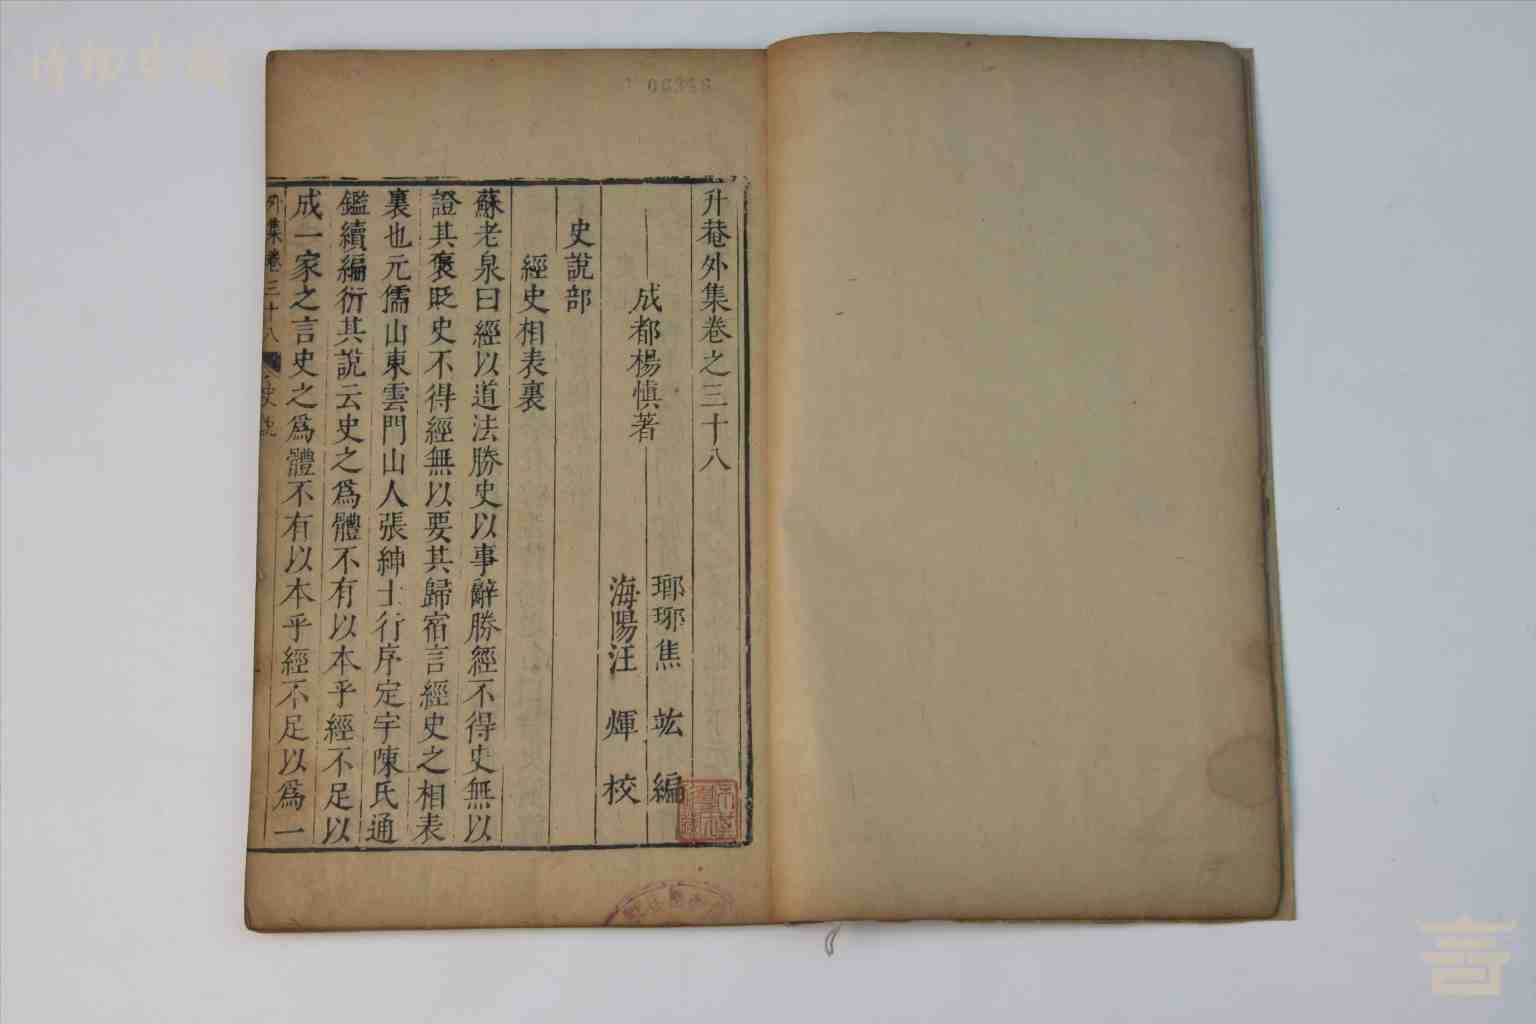 升菴外集卷之三十八
成都楊慎著
瑯琊焦竑編
海陽汪煇校
史說部
經史相表裏
蘇老泉曰經以道法勝史以事辭勝經不得史無以
證其褒貶史不得經無以要其歸宿言經史之相表
裏也元儒山東雲門山人張紳士行序定宇陳氏通
鑑續編衍其說云史之爲體不有以本乎經不足以
成一家之言史之爲體不有以本乎經不足以爲一
外集卷三十八
史說
06346